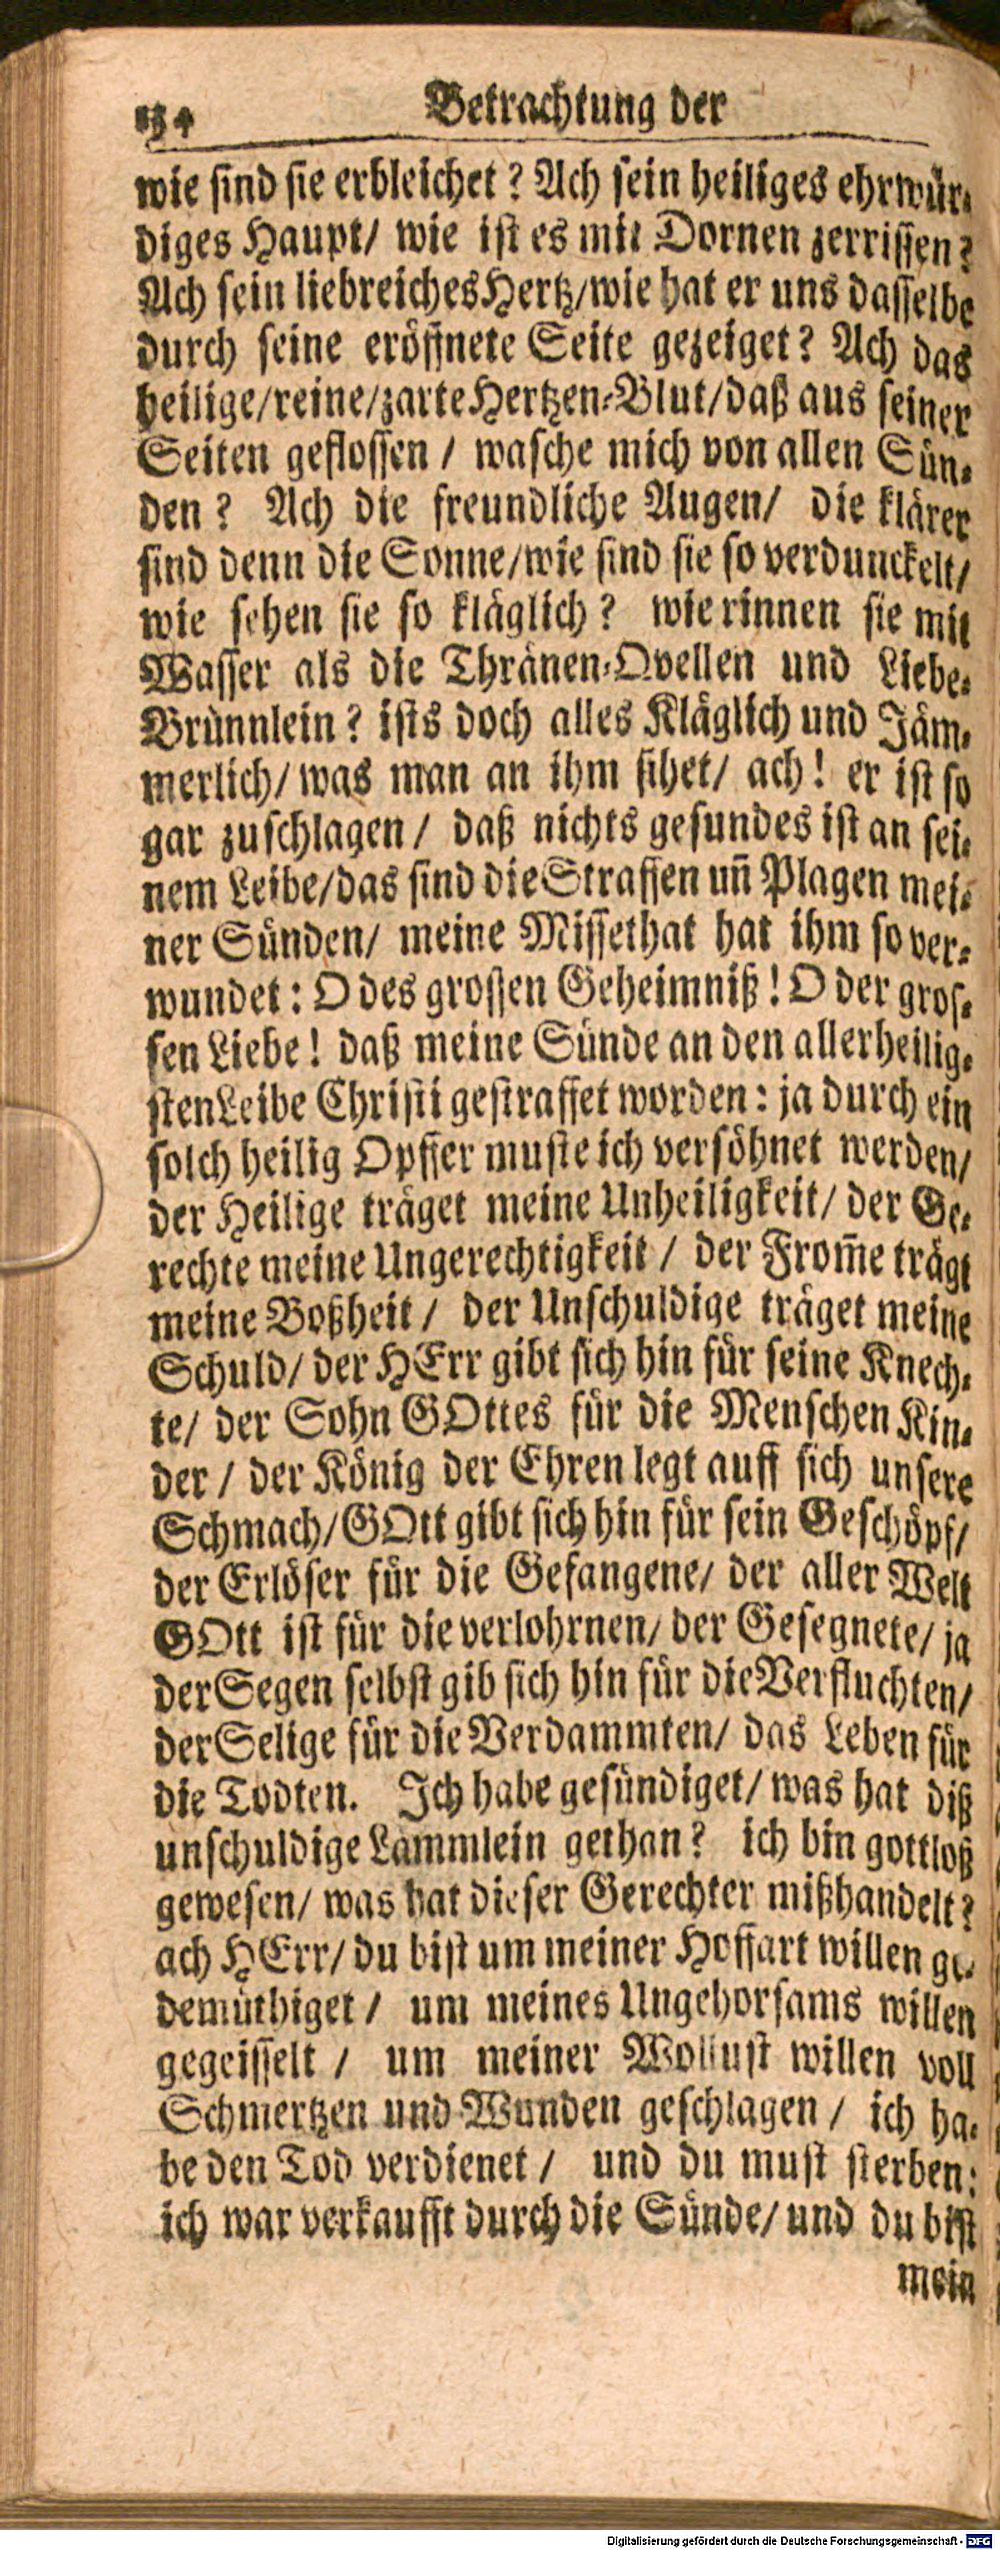 134 Betrachtung der
wie sind sie erbleichet? Ach sein heiliges ehrwür-
diges Haupt/ wie ist es mit Dornen zerrissen?
Ach sein liebreiches Hertz/wie hat er uns dasselbe
durch seine eröffnete Seite gezeiget? Ach das
heilige/reine/zarte Hertzen-Blut/daß aus seiner
Seiten geflossen / wasche mich von allen Sün-
den? Ach die freundliche Augen/ die klärer
sind denn die Sonne/wie sind sie so verdunckelt/
wie sehen sie so kläglich? wie rinnen sie mit
Wasser als die Thränen-Qvellen und Liebe-
Brünnlein? ists doch alles Kläglich und Jäm-
merlich/ was man an ihm sihet/ ach! er ist so
gar zuschlagen/ daß nichts gesundes ist an sei-
nem Leibe/das sind die Straffen uñ Plagen mei-
ner Sünden/ meine Missethat hat ihm so ver-
wundet: O des grossen Geheimniß! O der gros-
sen Liebe! daß meine Sünde an den allerheilig-
sten Leibe Christi gestraffet worden: ja durch ein
solch heilig Opffer muste ich versöhnet werden/
der Heilige träget meine Unheiligkeit/ der Ge-
rechte meine Ungerechtigkeit / der From̃e trägt
meine Boßheit / der Unschuldige träget meine
Schuld/ der HErr gibt sich hin für seine Knech-
te/ der Sohn GOttes für die Menschen Kin-
der / der König der Ehren legt auff sich unsere
Schmach/GOtt gibt sich hin für sein Geschöpf/
der Erlöser für die Gefangene/ der aller Welt
GOtt ist für die verlohrnen/ der Gesegnete/ ja
der Segen selbst gib sich hin für die Verfluchten/
der Selige für die Verdammten/ das Leben für
die Todten. Ich habe gesündiget/ was hat diß
unschuldige Lämmlein gethan? ich bin gottloß
gewesen/ was hat dieser Gerechter mißhandelt?
ach HErr/ du bist um meiner Hoffart willen ge-
demüthiget / um meines Ungehorsams willen
gegeisselt / um meiner Wollust willen voll
Schmertzen und Wunden geschlagen / ich ha-
be den Tod verdienet / und du must sterben:
ich war verkaufft durch die Sünde/ und du bist
mein
Digitalisierung gefördert durch die Deutsche Forschungsgemeinschaft - DFG